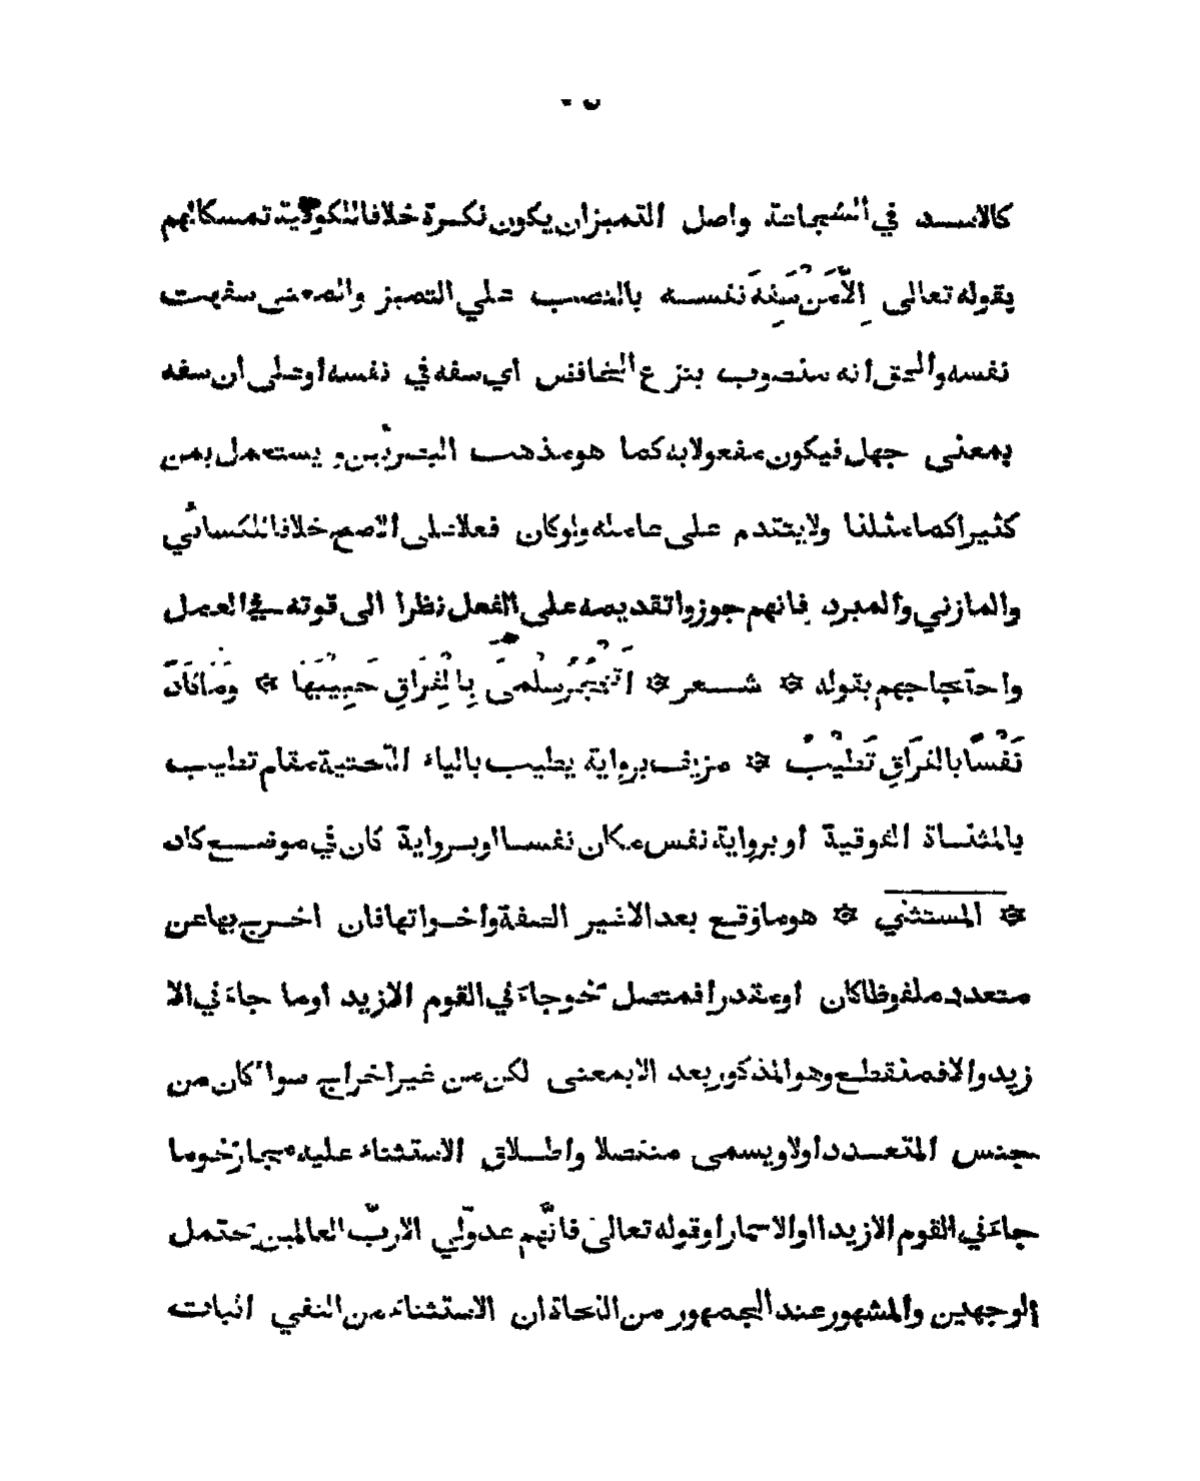 كالاسد في الشجاعة واصل التميزان يكون نكرة خلافاللكوفية تمسكالهم
بقوله تعالى اِلاَّمَنْ سَفِهَ نفسه بالنصب علي التميز والمعنى سفهت
نفسه والحق انه منصوب بنزع الخافض اي سفه في نفسه اوعلى ان سفه
بمعنى جهل فيكون مفعولا به كما هومذهب البصريّين ويستعمل بمن
كثيراكمامثلنا ولايتقدم على عامله ولوكان فعلاعلى الاصح خلافاللكسائي
والمازني والمبرد فانهم جوزواتقديمه على الفعل نظرا الى قوته في العمل
واحتجاجهم بقوله ۞ شعر ۞ اَتَهْجُرُسَلْمىَ بِالْفِرَاقِ حَبِيْبَهَا ۞ وَمَاكَادَ
نَفْسًابالفرَاقِ تَطيْبُ ۞ مزيف برواية يطيب بالياء التحتية مقام تطيب
بالمثناة الفوقية أو برواية نفس مكان نفسااوبرواية كان في موضع كاد
۞ المستثني ۞ هوماوقع بعد الاغير الصفة واخواتهافان اخرج بهاعن
متعدد ملفوظاكان اومقدرافمتصل نحوجاءَ في القوم الازيد اوما جاءَ في الا
زيد والافمنقطع وهوالمذكوربعد الابمعنى لكن من غيراخراج سواءكان من
جنس المتعدد اولا ويسمى منفصلا واطلاق الاستثناء عليه مجازنحوما
جاءَ في القوم الازيدااوالاحمارا وقوله تعالى فانَّهم عدوّلي الاربّ العالمين يحتمل
الوجهين والمشهورعند الجمهور من النحاة ان الاستثناء من النفي اثبات